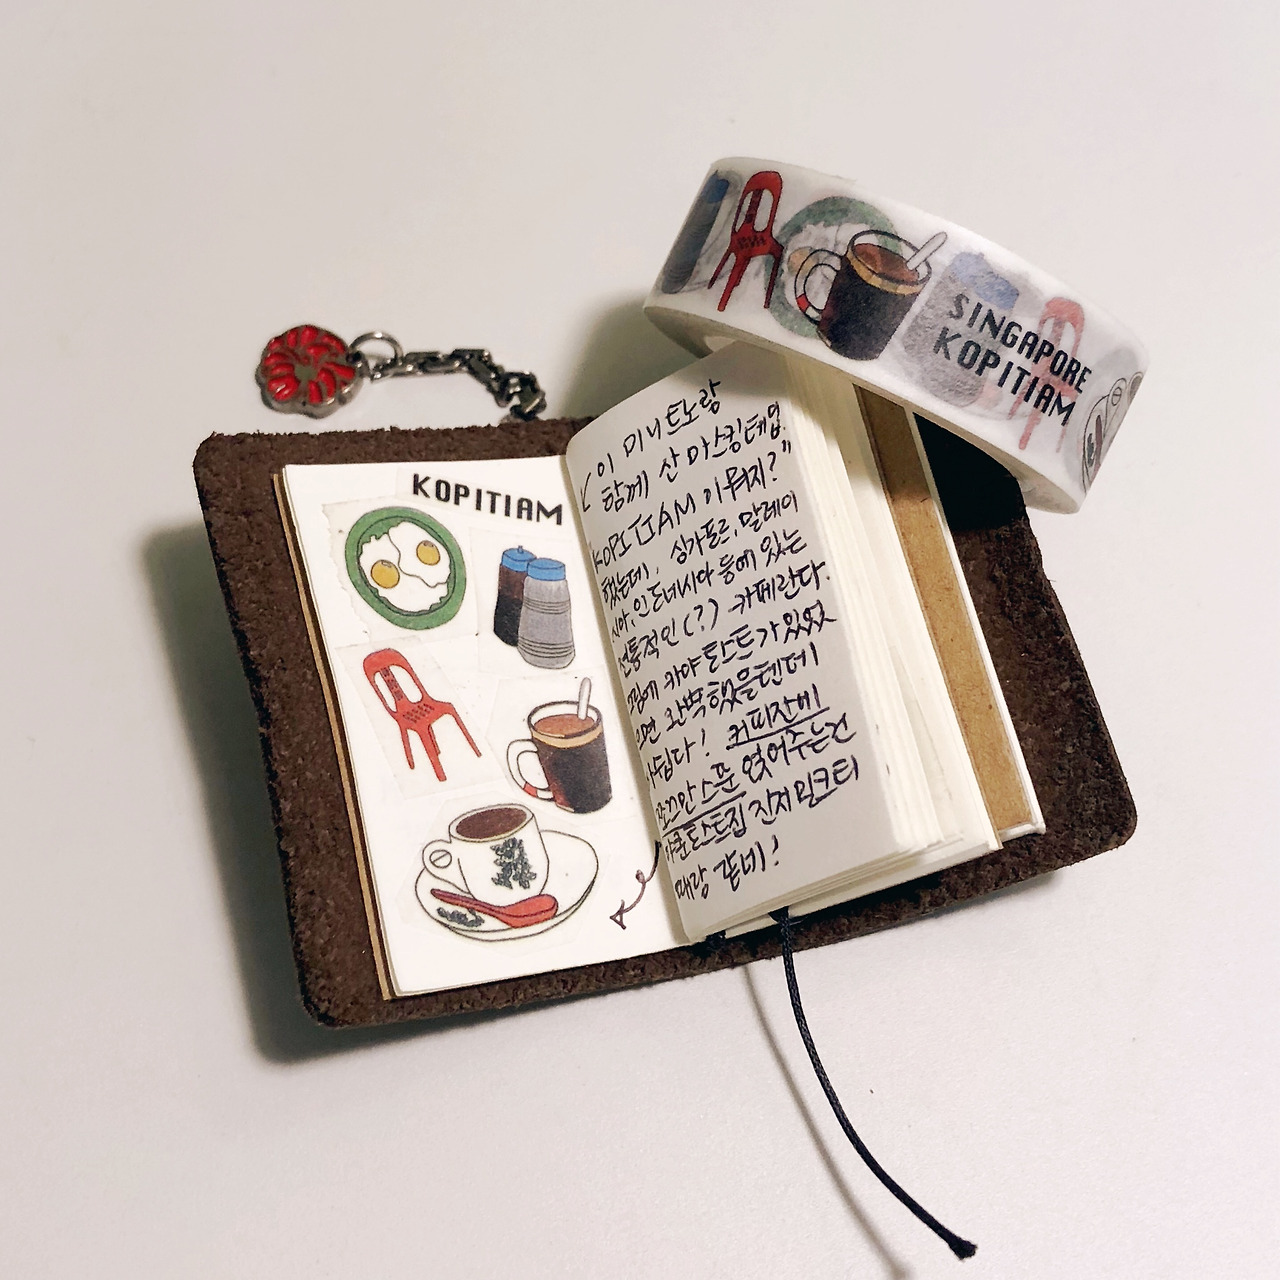 SINGAPORE
KOPITIAM
KOPITIAM
이 미니 트노랑
함께 산 마스킹테잎.
이 뭐지?"
했는데, 싱가폴르, 말레이
시아, 인도네시아 등에 있는
전통적인(?) 카페란다.
카야 토스트가 있었
으면 완벽했을텐데
아쉽다! 커피잔에
조그만 스푼 엎어주는건
야쿤토스트집 진저밀크티
때랑 같네!